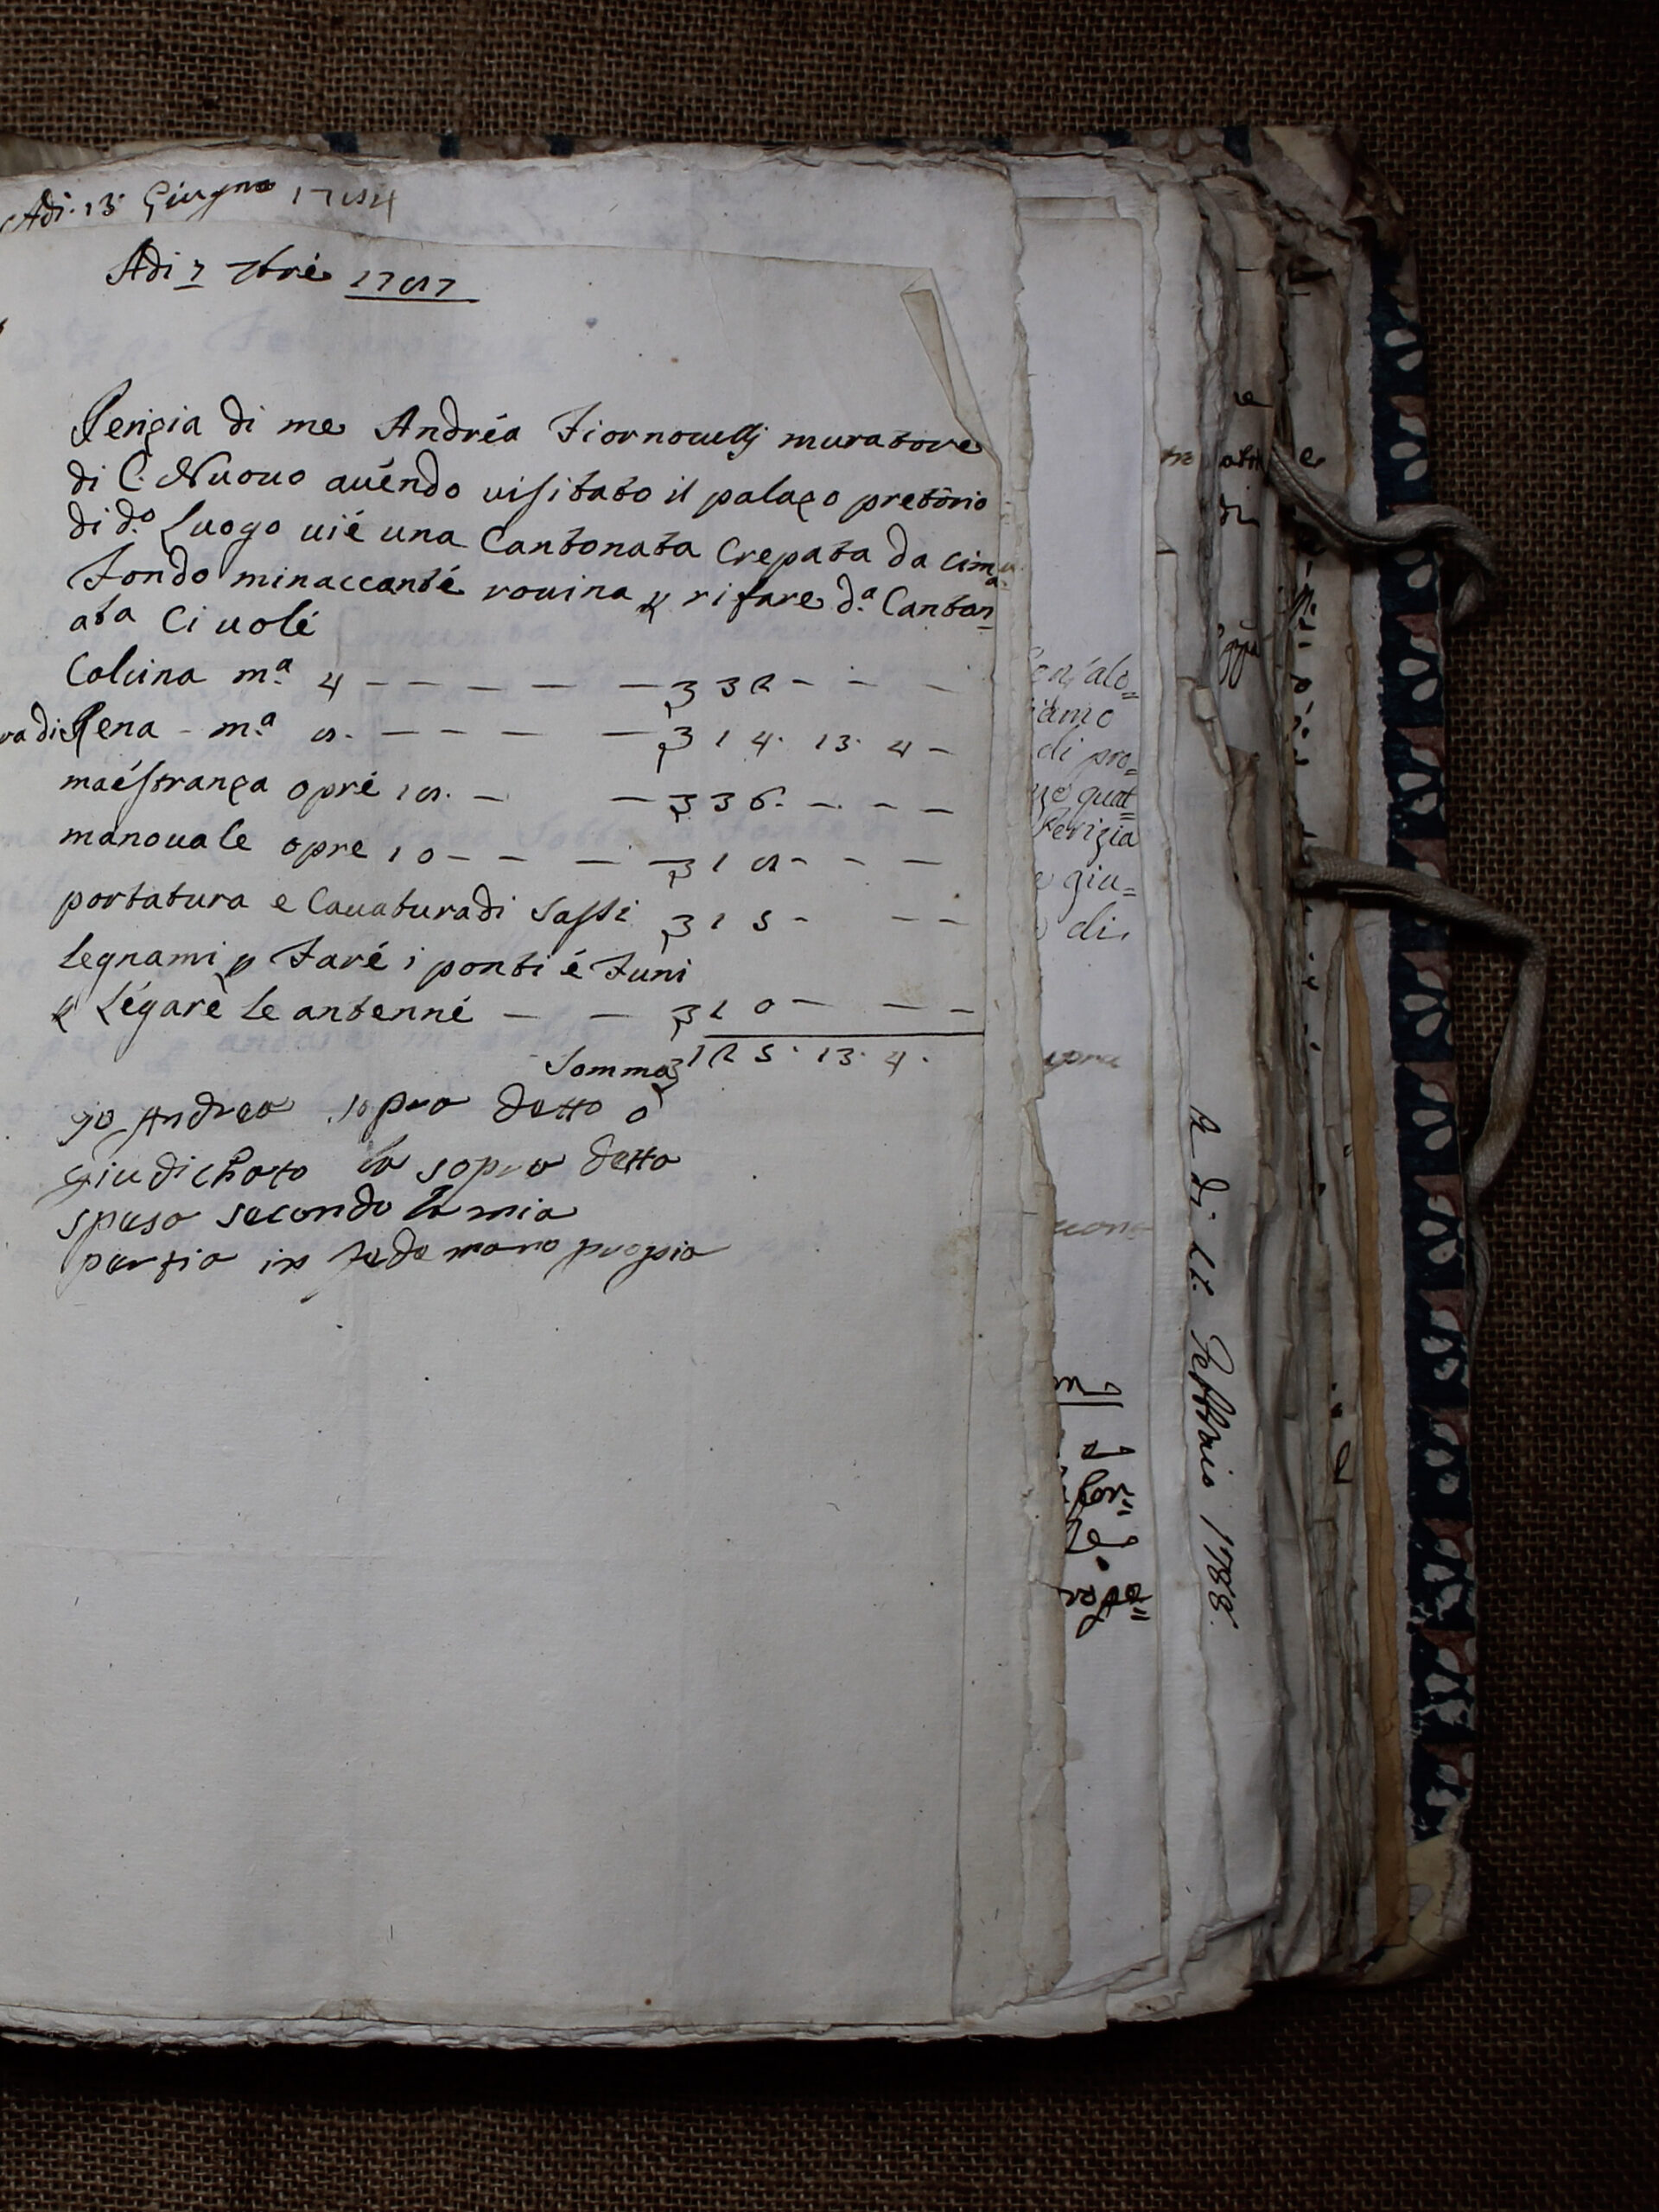 Adi. 13. Giugno
Adi 7 7bre 1787
Perizia di me Andréa Fiornouelli muratore
di C. Nuouo auéndo uisitato il palazo pretorio
di d.o Luogo uié una Cantonata Crepata da cima
fondo minaccanté rouina p rifare d.a Canton=
ata Ci uolé
Calcina m.a 4 — — — — — 32 — — —
Rena - m.a 8. — — — — 14. 13. 4 —
maéstranza opré 18. — — 36. — — —
manouale opre 10 — — — — 18 — — —
portatura e Cauatura di Sassi 15 — — —
Legnami p faré i ponti é funi
p Légaré Le antenné — — 10 — — —
Somma 125. 13. 4.
Io Andrea sopra detto ò
giudichato la sopra detta
spesa secondo la mia
perzia in fede mano propia
di pro=
Perizia
e giu=
di
A di 21. Febbraio 1788.